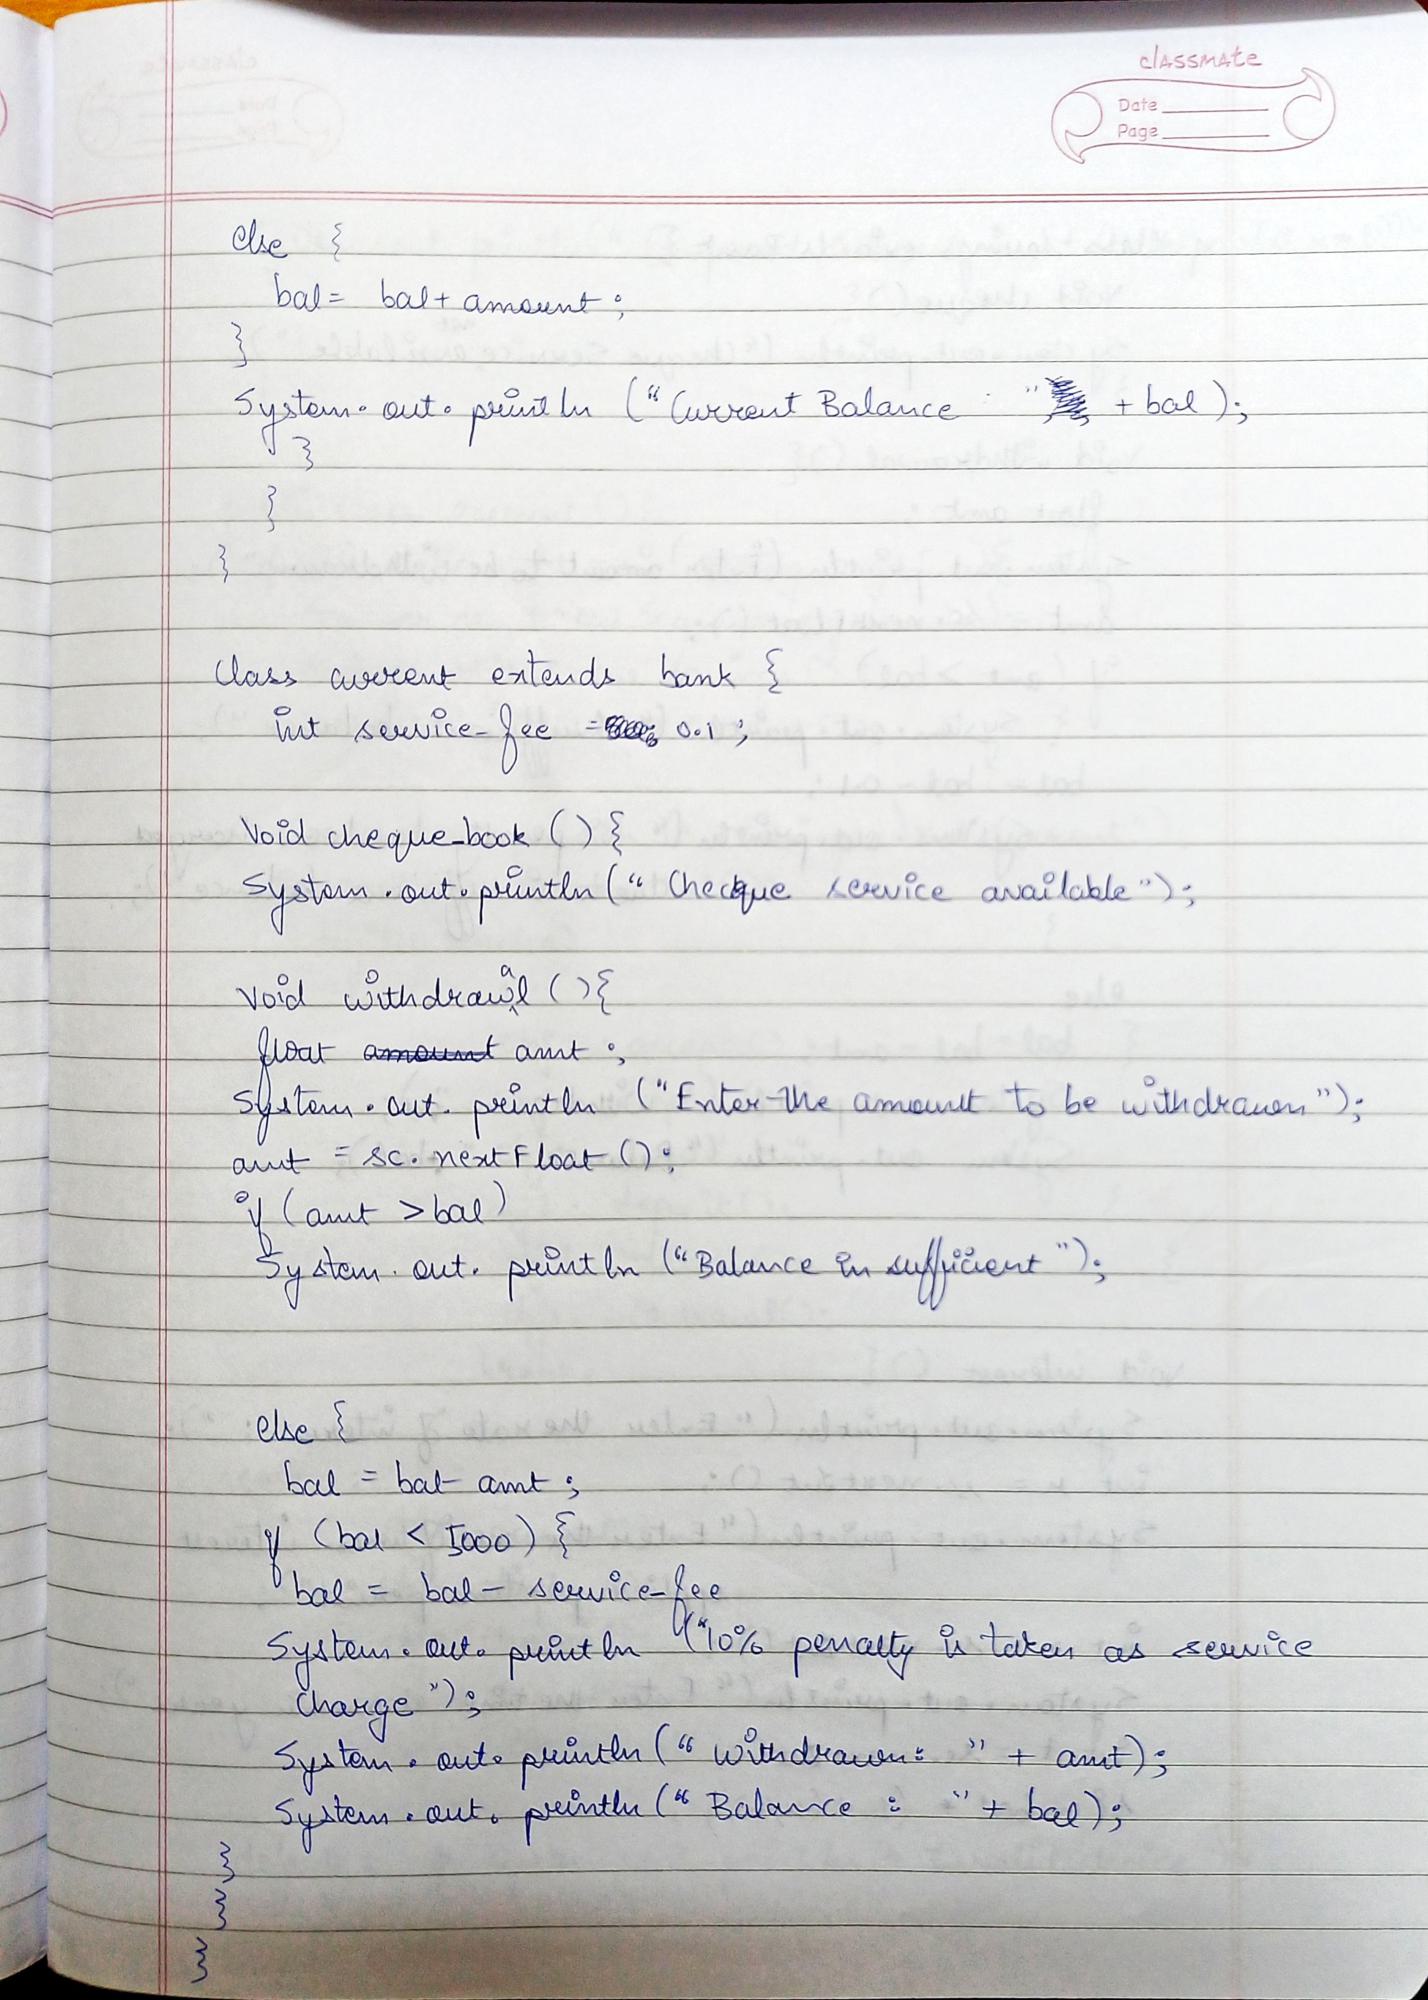 classmate
Date
Page
else {
bal = bal + amount ;
}
System.out.println ("Current Balance : " + bal );
}
}
}
Class current extends bank {
int service_fee = 0.1 ;
Void cheque_book ( ) {
System.out.println (" Checque service available ");
Void withdrawal ( ) {
float amount amt ;
System.out.println ("Enter the amount to be withdrawn");
amt = sc.nextFloat ( );
if (amt > bal)
System.out.println ("Balance in sufficient ");
else {
bal = bal - amt ;
if (bal < 5000) {
bal = bal - service_fee
System.out.println ("10% penalty is taken as service
charge ");
System.out.println (" Withdrawn: " + amt);
System.out.println (" Balance : " + bal);
}
}
}